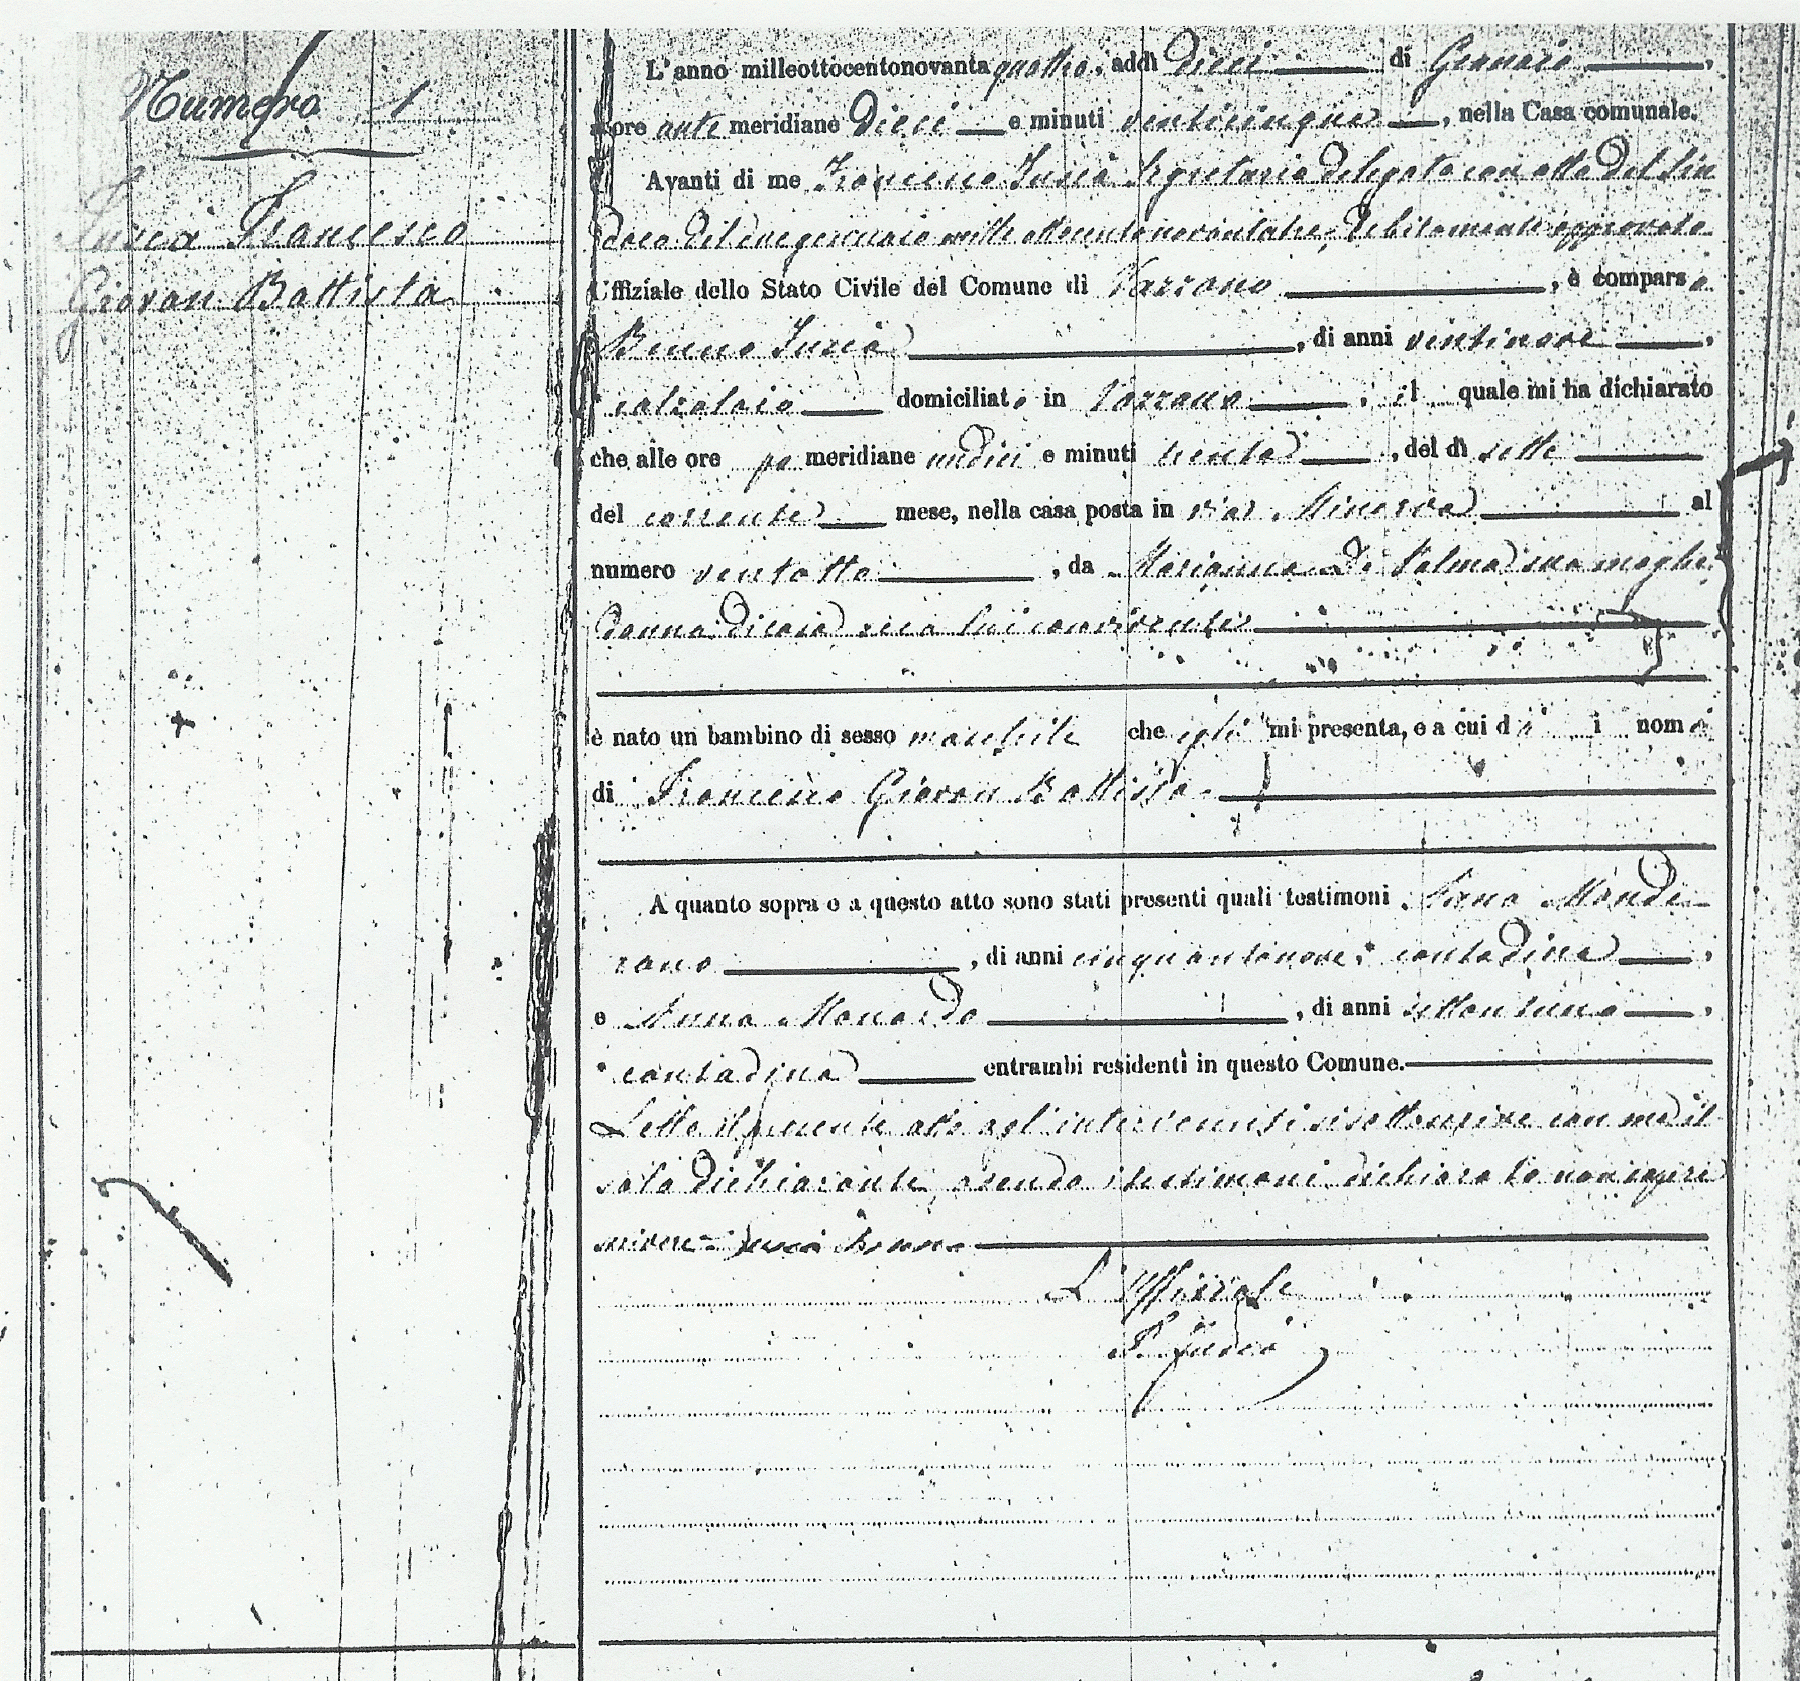 Numero 1
Francesco
Giovan Battista
L'anno milleottocentonovantaquattro, addì dieci di Gennaio,
a ore anti meridiane dieci e minuti venticinque, nella Casa comunale.
Avanti di me Francesco Segretario delegato con atto del Sin
daco del due gennaio mille ottocento novantatre, debitamente approvato
Uffiziale dello Stato Civile del Comune di Vazzano, è comparso
Bruno, di anni ventinove,
calzolaio domiciliato in Vazzano, il quale mi ha dichiarato
che alle ore po meridiane undici e minuti trenta, del dì sette
del corrente mese, nella casa posta in via Minerva al
numero ventotto, da Marianna De sua moglie
donna di casa seco lui convivente
è nato un bambino di sesso maschile che egli mi presenta, e a cui dà i nomi
di Francesco Giovan Battista
A quanto sopra e a questo atto sono stati presenti quali testimoni
, di anni cinquantanove, contadina,
e Anna Monardo, di anni settantuno,
contadina entrambi residenti in questo Comune.
Letto il presente atto agl'intervenuti si sottoscrive con me il
solo dichiarante, avendo i testimoni dichiarato non sapere
scrivere = Bruno
L'Uffiziale
F.